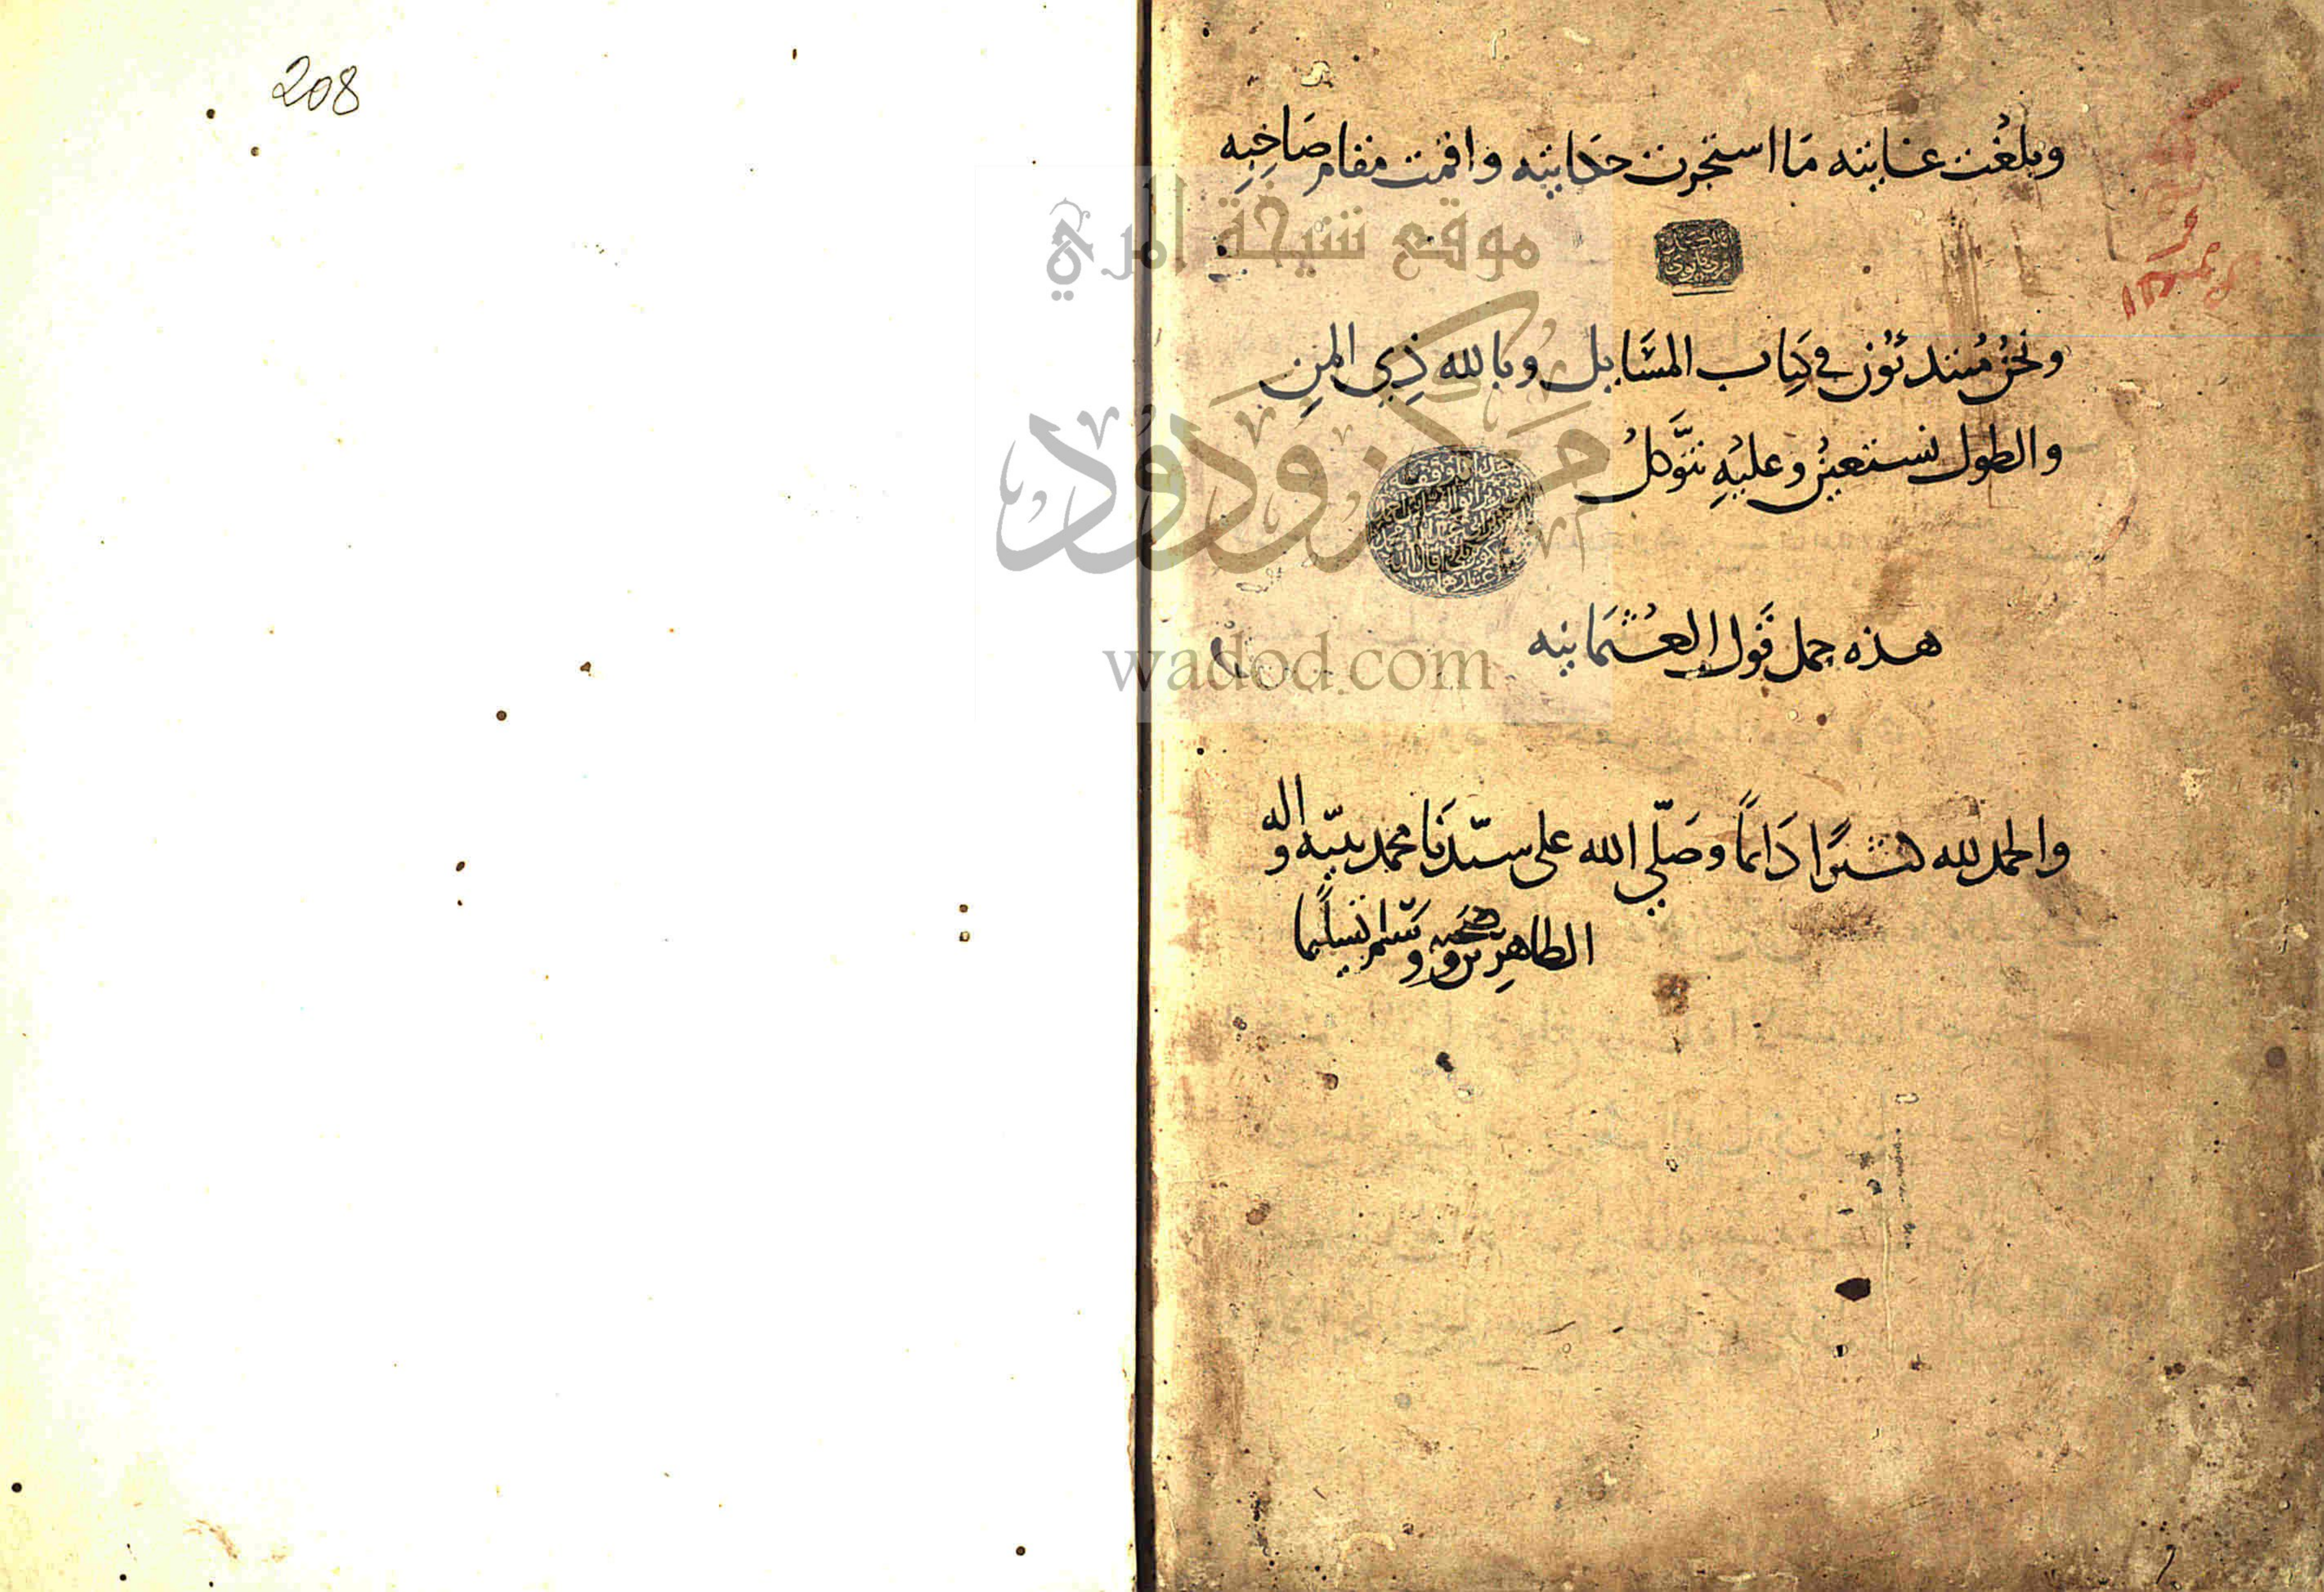 وبلغت غايته ما استجزت حكايته واقمت مقام صاحبه
ونحن مبتدئون في كتاب المسايل وبالله ذي المن
والطول نستعين وعليه نتوكل
هذه جمل قول العثمانيه
والحمد لله كثيرًا دائمًا وصلّي الله على سيّدنا محمد نبيّه واله
الطاهرين وصحبه وسلم تسليما
208
موقع شيخة امري
مركز ودود
wadod.com